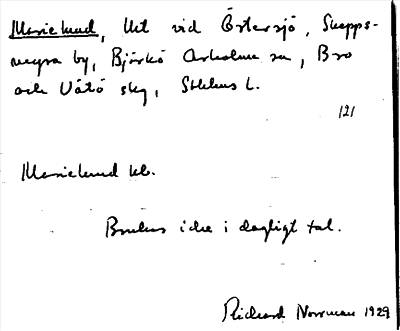 Marielund, Ukt vid Östersjö, Skepps-
meyra by, Björkö Arholma sn, Bro
och Vätö skg, Sthlms l.
121
Marielund kb.
Brukas icke i dagligt tal.
Richard Norrman 1929